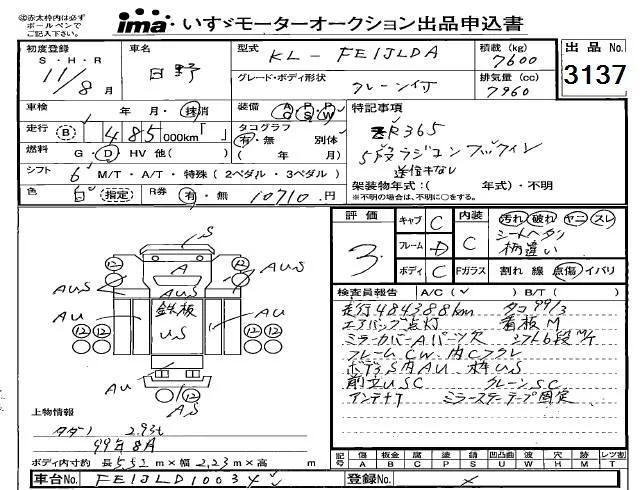 ○赤太枠内は必ず
ボールペンで
ご記入下さい。
ima いすゞモーターオークション出品申込書
初度登録
S・H・R
11/8月
車名
日野
型式
KL-FE1JLDA
グレード・ボディ形状
クレーン付
積載(kg)
7600
排気量(cc)
7960
出品No.
3137
車検
年 月・抹消
走行 B 485000km「 」
燃料 G・D HV 他( )
シフト 6 M/T・A/T・特殊(2ペダル・3ペダル)
色 白 指定 R券 有・無 10710円
装備 AC PS PW
タコグラフ
有・無 別体
( 年 月)
特記事項
R365
5段ラジコン フックイン
送信キなし
架装物年式:( 年式)・不明
※不明の場合は、不明に○をする。
評価
3
キャブ C
フレーム D
ボディ C
内装
C
Fガラス
汚れ 破れ ヤニ スレ
シートヘタリ
柄違い
割れ 線 点傷 イバリ
S
12 12
A
AUS AUS
AUS
鉄板
US
AU AU
12 12 12 12
AU
12
AS
検査員報告 A/C(✓) B/T( )
走行484388km タコ99/3
エアバッグ点灯 看板M
ミラーカバーAパーツ欠 シフト6段M/T
フレームCW、内Cフクレ
ボデーS内AU、床キUS
前立USC クレーンSC
アンテナT ミラーステーテープ固定
上物情報
タダノ 2.93t
99年8月
ボディ内寸約 長 552 m×幅 2.23 m×高 m
記号 傷 A 板金 B 腐 C 塗 P 錆 S 凹凸曲 U 波 W 穴 H 跡 M レツ割 T
車台No. FE1JLD10034
登録No.